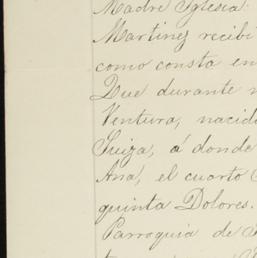 Madre Iglesia.
Martinez recibi
como consta en
Que durante
Ventura, nacid
Suiza, á donde
Ana, el cuarto
quinta Dolores.
Parroquia de